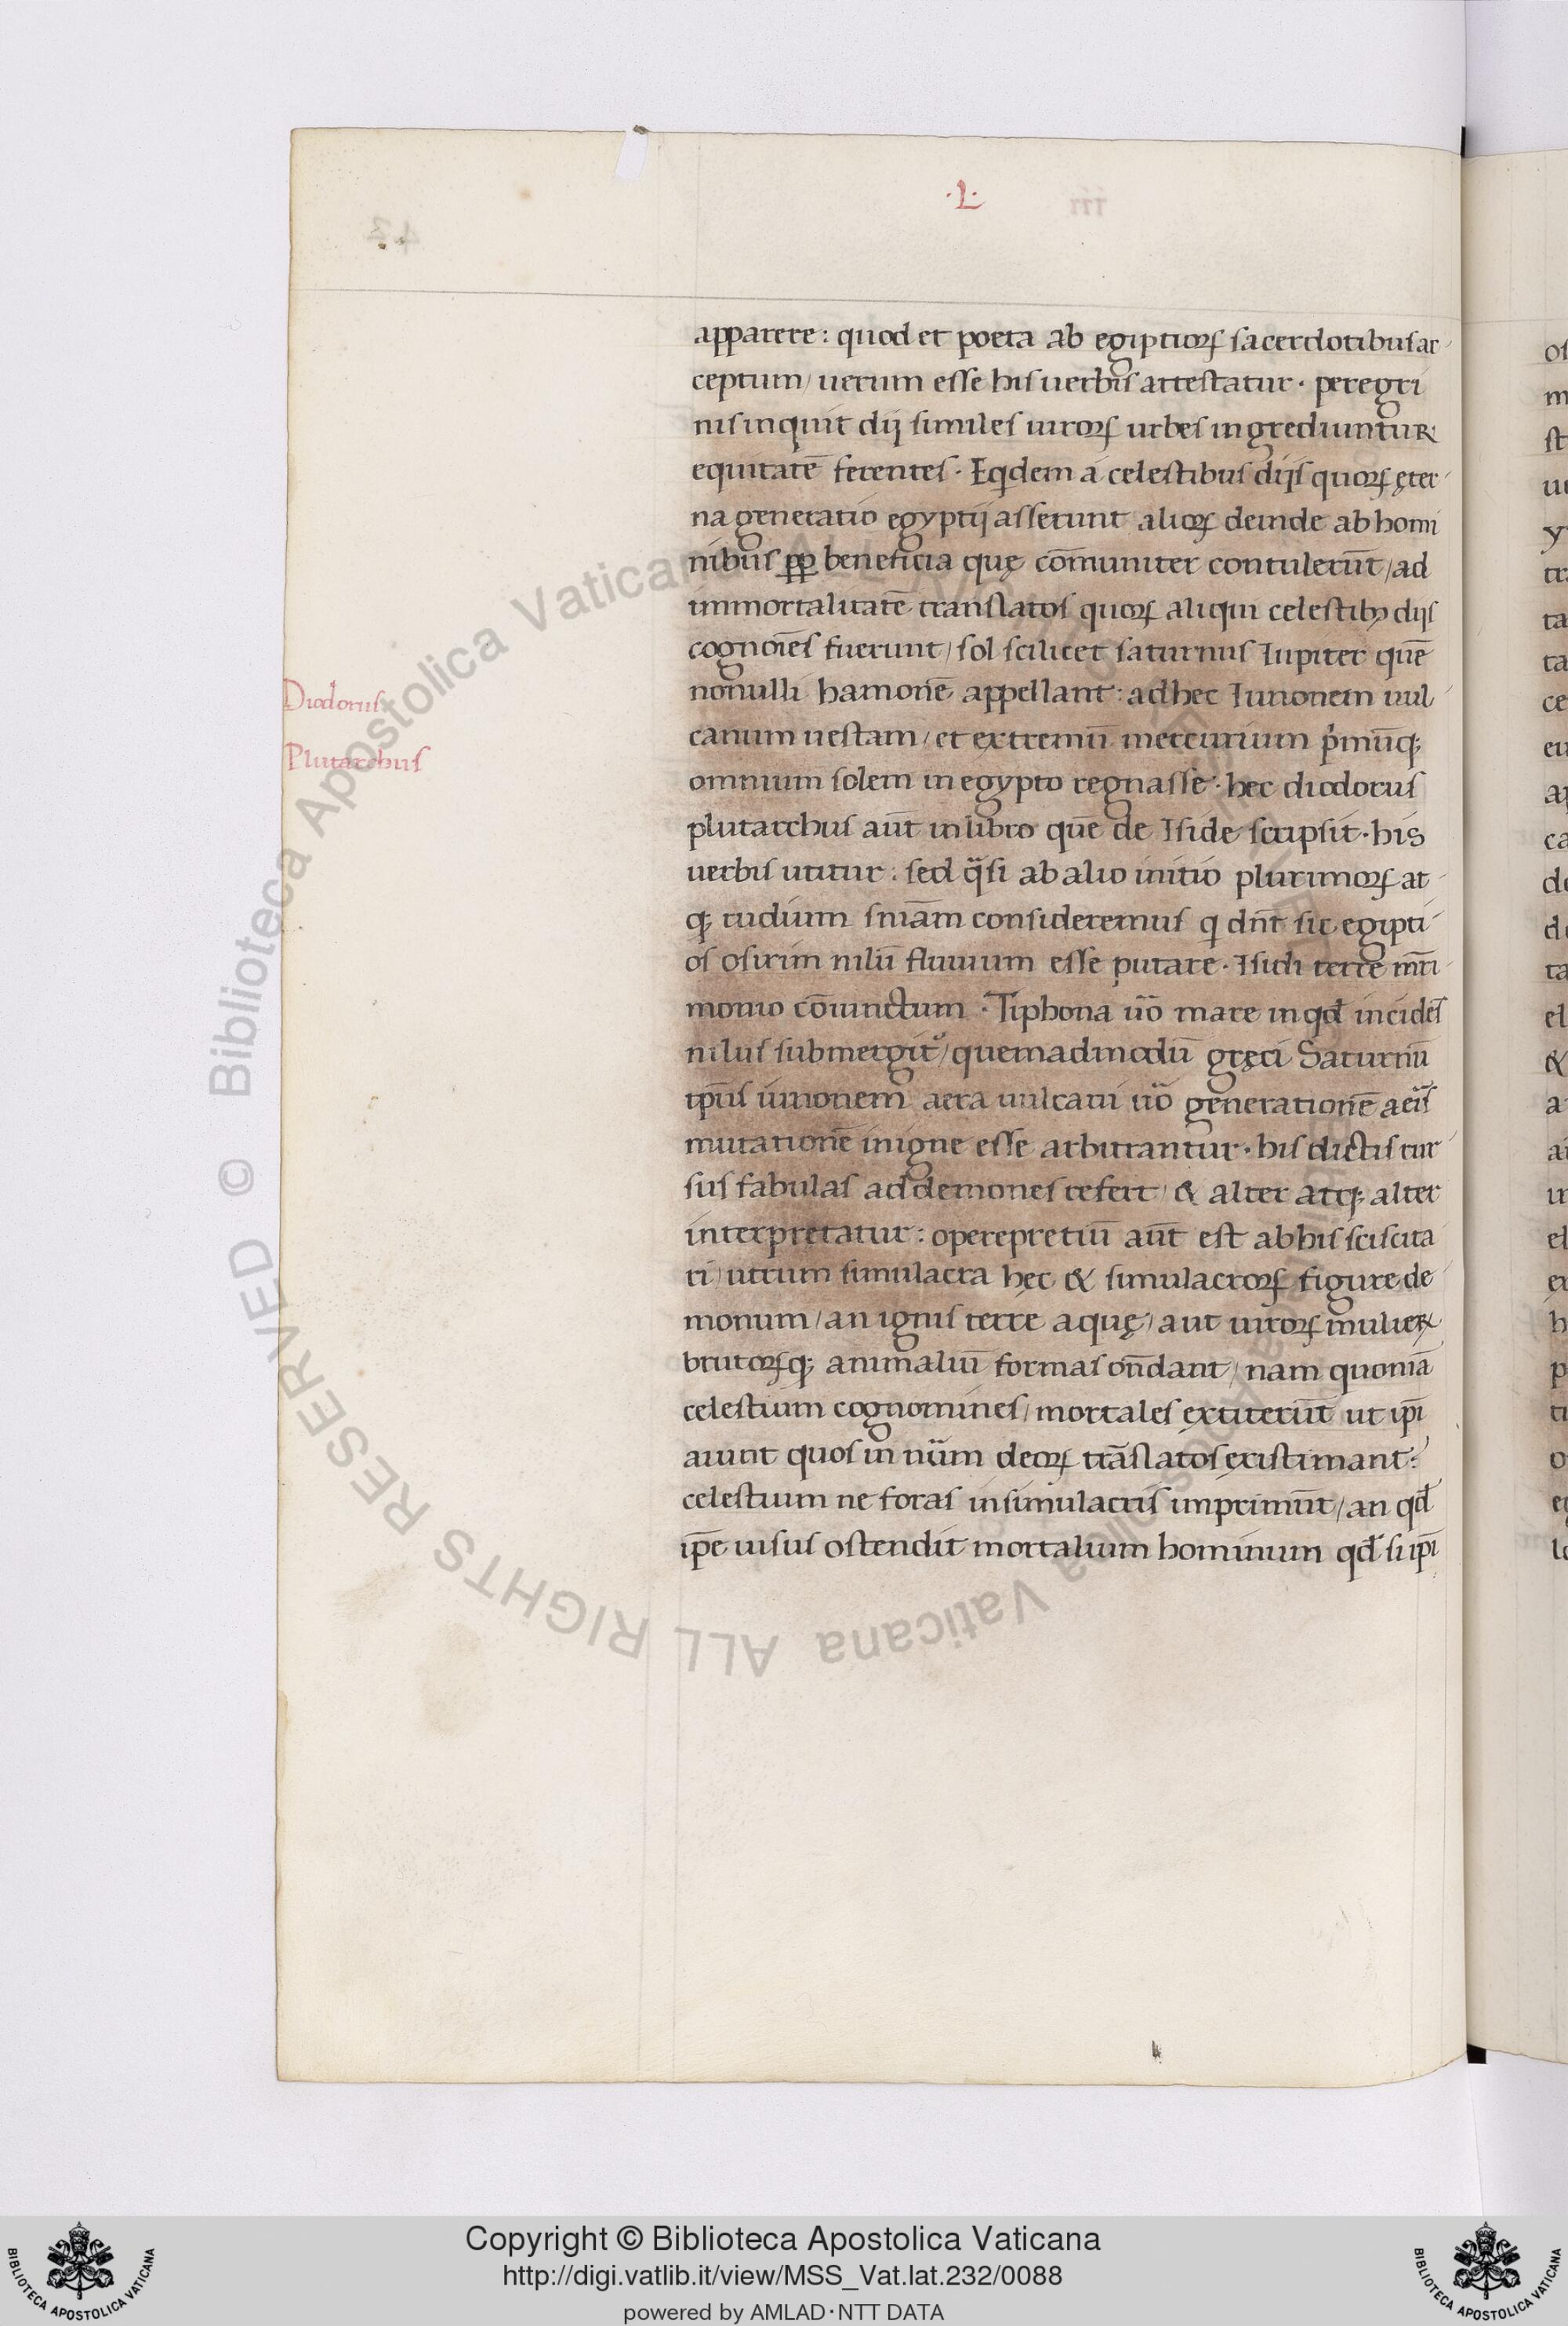 ·L·
apparere: quod et poeta ab egiptioꝝ sacerdotibus ac
ceptum/ uerum esse his uerbis attestatur· peregri
nis inquit dij similes uiroꝝ urbes ingrediuntur
equitatē ferentes· Eqdem a celestibus dijs quoꝝ ęter
na generatio egyptij asserunt alioꝝ deinde ab homi
nibus ꝓp beneficia quę cōmuniter contulerūt/ ad
immortalitatē translatos quoꝝ aliqui celestibꝫ dijs
cognoīes fuerunt/ sol scilicet saturnus Iupiter quē
nonulli hamonē appellant: adhec Iunonem uul
canum uestam/ et extremū mercurium pͥmūqꝫ
omnium solem in egypto regnasse· hec diodorus
plutarchus aūt in libro quē de Iside scripsit· his
uerbis utitur: sed qͣsi ab alio initio plurimoꝝ at
qꝫ rudium sniam̄ consideremus q dn̄t sic egipti
os osirim nilū fluuium esse putare· Isidi terre mr̄i
monio cōiunctum· Tiphona ūo mare in qđ incidēs
nilus submergitᷣ/ quemadmodū gręci Saturnū
tp̄us iunonem aera uulcani ūo generationē aeīs
mutationē in igne esse arbitrantur· his dictis rur
sus fabulas ad demones refert/ & alter atqꝫ alter
interpretatur: operepretiū aūt est ab his sciscita
ri/ utrum simulacra hęc & simulacroꝝ figure de
monum/ an ignis terre aquę/ aut uiroꝝ mulieꝝ
brutoꝝqꝫ animaliū formas on̄dant/ nam quoniā
celestium cognomines/ mortales extiterūt ut ip̄i
aiunt quos in nūm deoꝝ trāslatos existimant:
celestium ne foras in simulacris imprimūt/ an qđ
ip̄e uisus ostendit mortalium hominum qđ si ip̄i
Diodorus·
Plutarchus
© Biblioteca Apostolica Vaticana ALL RIGHTS RESERVED
Copyright © Biblioteca Apostolica Vaticana
http://digi.vatlib.it/view/MSS_Vat.lat.232/0088
powered by AMLAD·NTT DATA
BIBLIOTECA APOSTOLICA VATICANA
BIBLIOTECA APOSTOLICA VATICANA